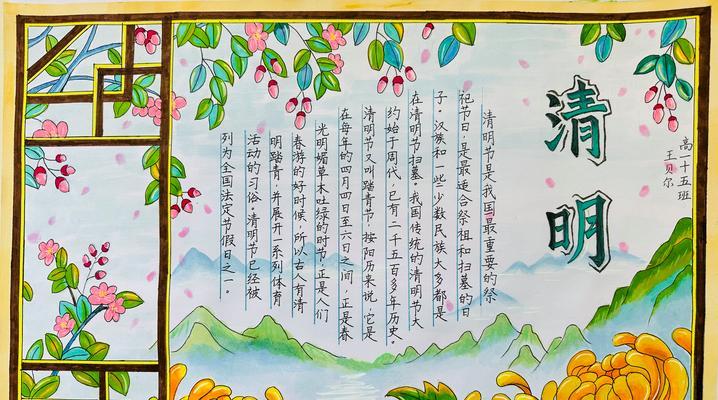 高一十五班
王贝尔
清明
清明节是我国最重要的祭
祀节日,是最适合祭祖和扫墓的日
子。汉族和一些少数民族大多都是
在清明节扫墓。我国传统的清明节大
约始于周代,已有二千五百多年历史。
清明节又叫踏青节,按阳历来说,它是
在每年的四月四日至六日之间,正是春
光明媚草木吐绿的时节,正是人们
春游的好时候,所以古人有清
明踏青,并展开一系列体育
活动的习俗。清明节已经被
列为全国法定节假日之一。